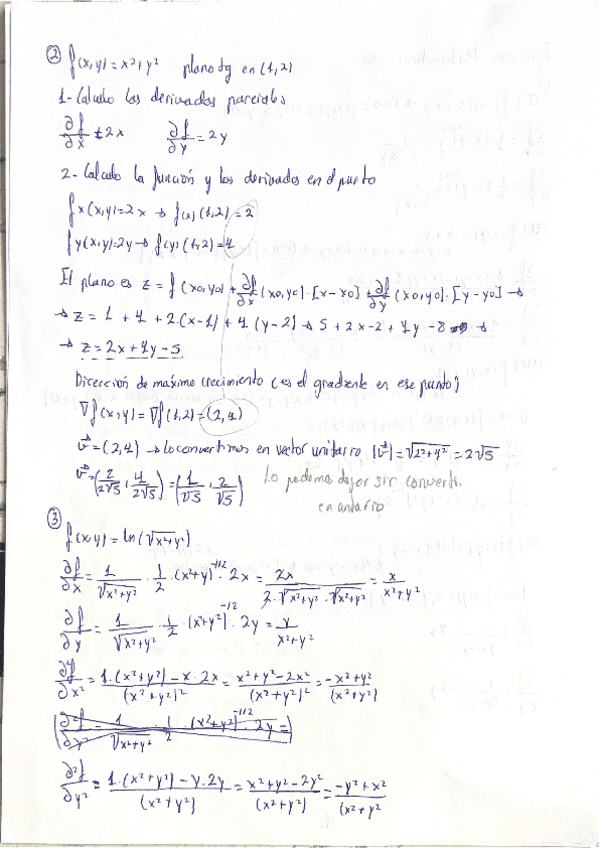 ② f(x,y) = x²+y² plano tg en (1,2)
1- Calculo las derivadas parciales
∂f/∂x = 2x ∂f/∂y = 2y
2- Calculo la función y las derivadas en el punto
fx(x,y)=2x → f(x)(1,2)=2
fy(x,y)=2y → f(y)(1,2)=4
El plano es z = f(x0,y0) + ∂f/∂x (x0,y0)·[x-x0] + ∂f/∂y (x0,y0)·[y-y0] →
→ z = 1 + 4 + 2·(x-1) + 4(y-2) → 5 + 2x-2 + 4y-8 →
→ z = 2x+4y-5
Dirección de máximo crecimiento (es el gradiente en ese punto)
∇f(x,y) = ∇f(1,2) = (2,4)
v⃗ = (2,4) → lo convertimos en vector unitario |v⃗| = √(2²+4²) = 2√5
v⃗ = (2/2√5, 4/2√5) = (1/√5, 2/√5) Lo podemos dejar sin convertir
en unitario
③
f(x,y) = ln(√x²+y²)
∂f/∂x = 1/√(x²+y²) · 1/2 · (x²+y²)^-1/2 · 2x = 2x/(2·√(x²+y²)·√(x²+y²)) = x/(x²+y²)
∂f/∂y = 1/√(x²+y²) · 1/2 · (x²+y²)^-1/2 · 2y = y/(x²+y²)
∂²f/∂x² = (1·(x²+y²) - x·2x)/(x²+y²)² = (x²+y²-2x²)/(x²+y²)² = (-x²+y²)/(x²+y²)
(∂²f/∂y² = 1/√(x²+y²) · 1/2 · (x²+y²)^-1/2 · 2y =)
∂²f/∂y² = (1·(x²+y²) - y·2y)/(x²+y²) = (x²+y²-2y²)/(x²+y²) = (-y²+x²)/(x²+y²